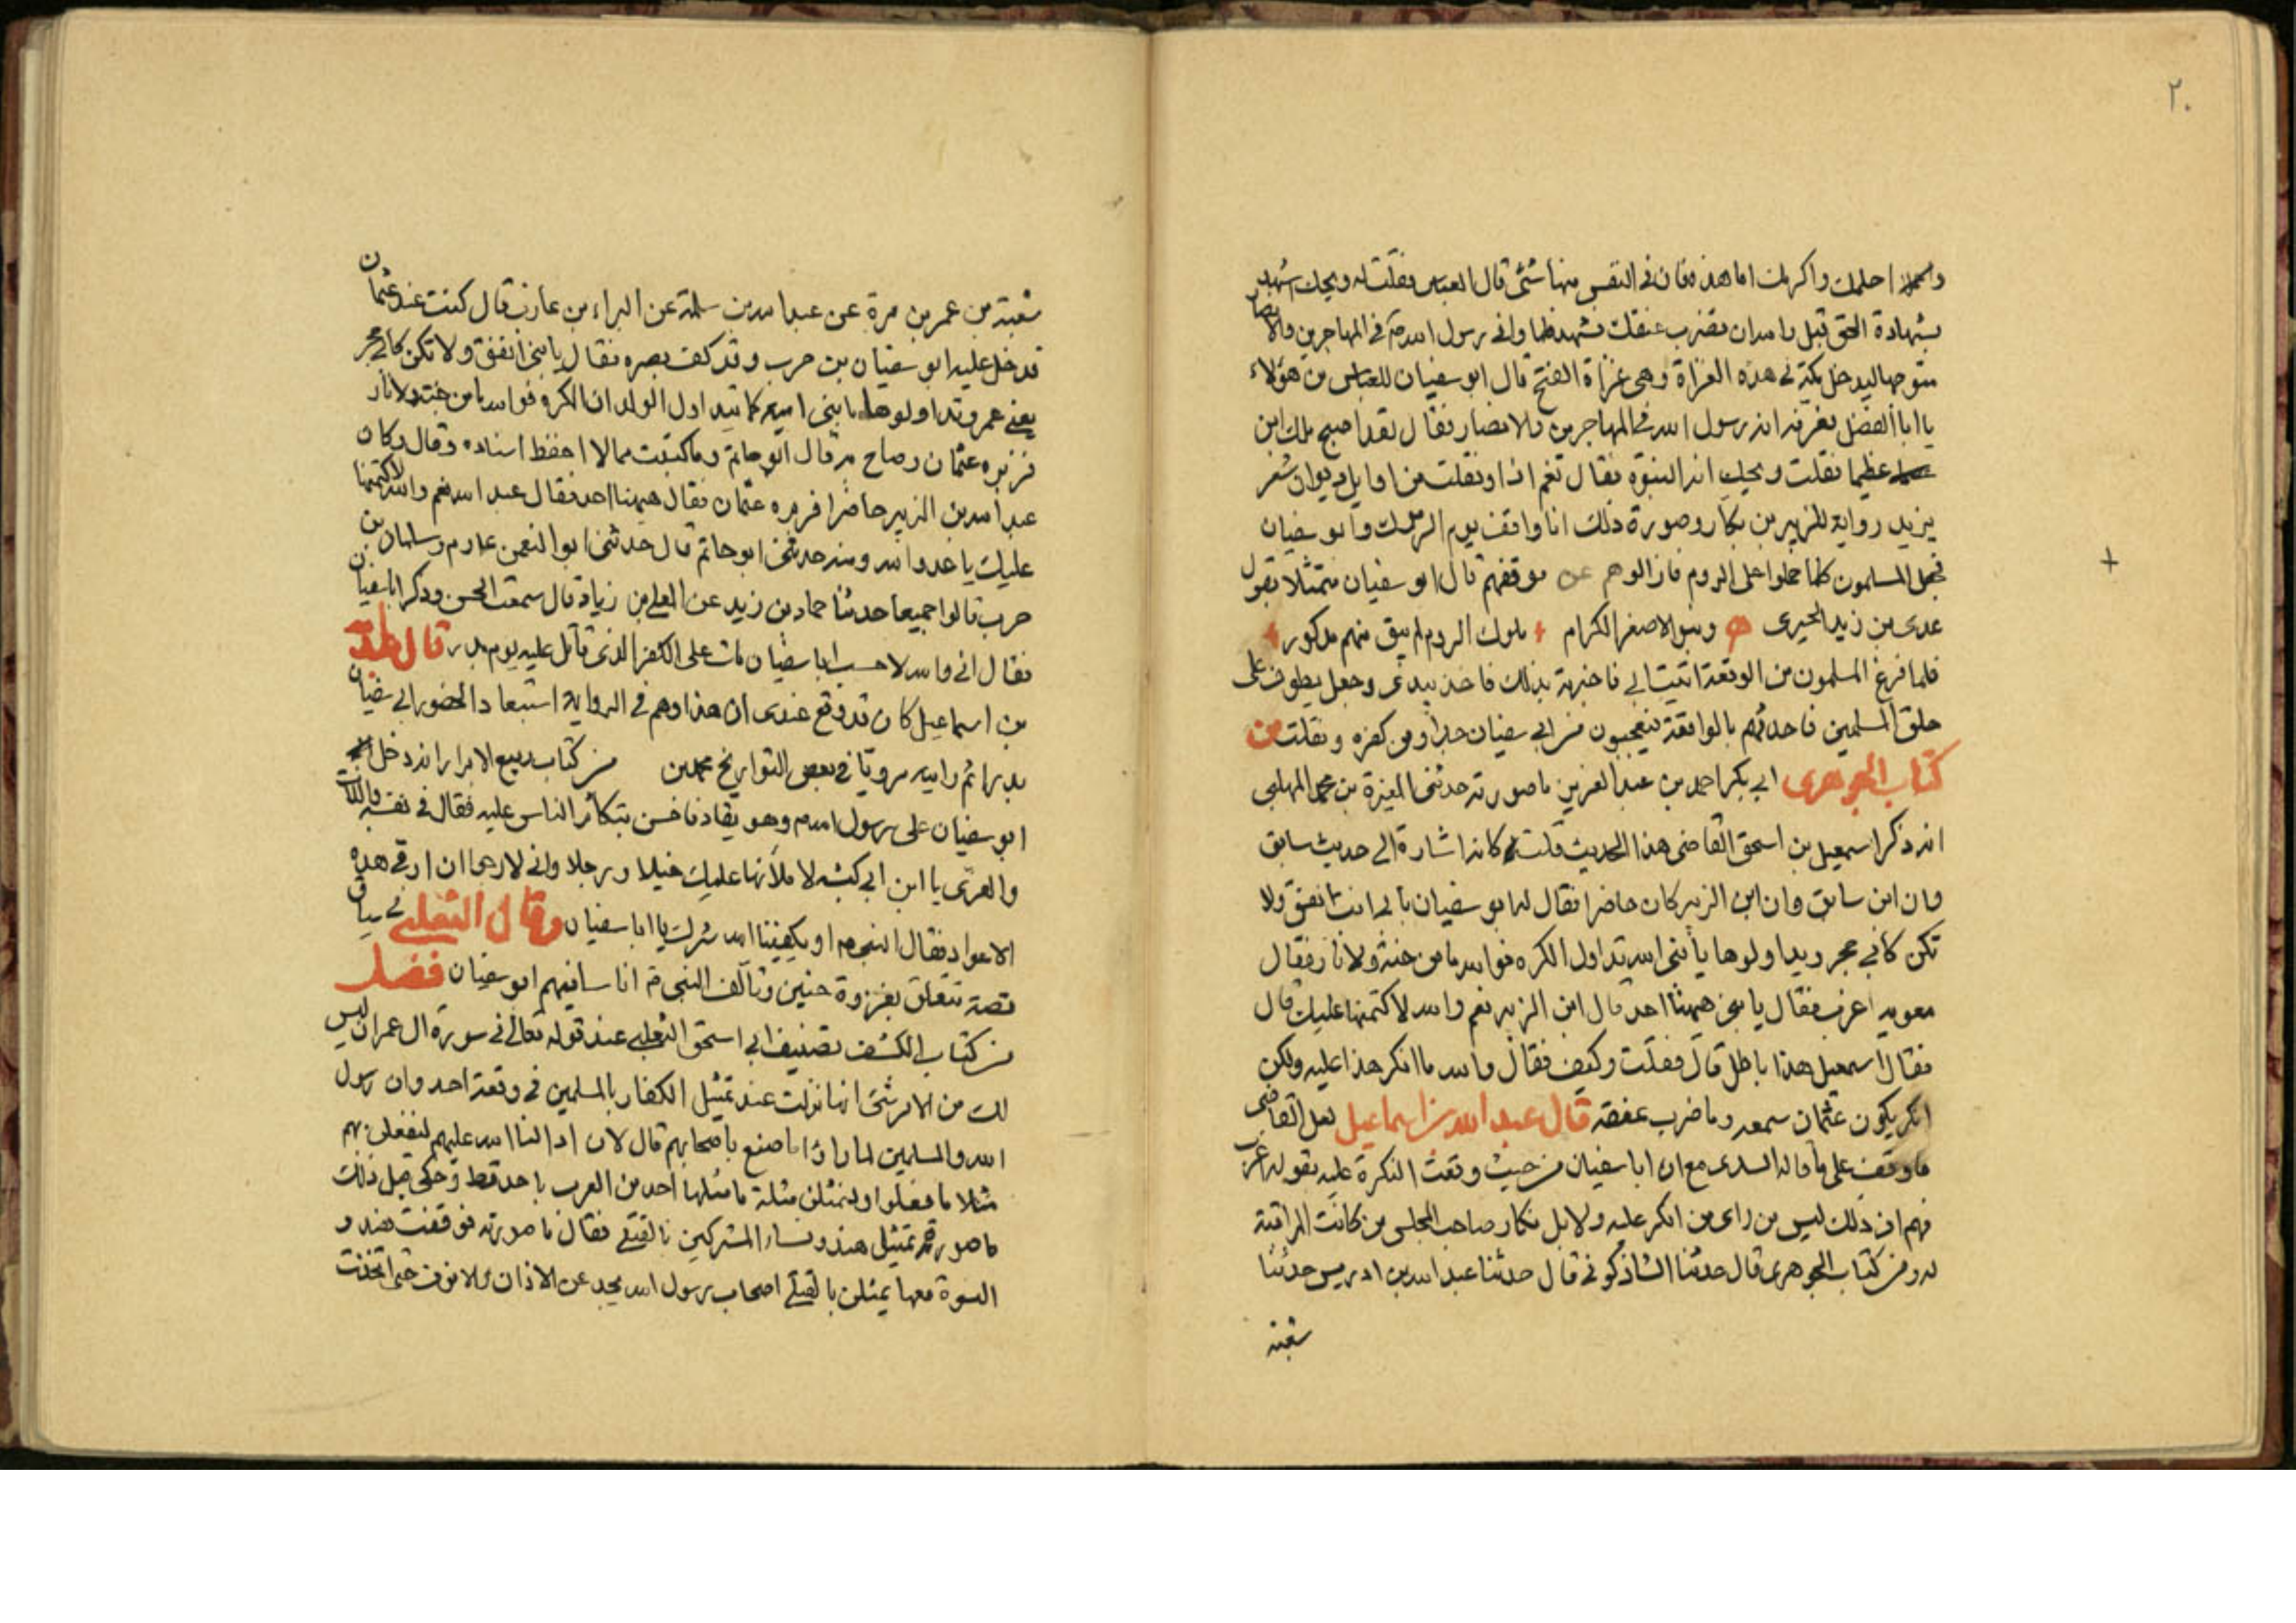 ٢٠
احلمك واكرمك اما هذه فان في النفس منها شئ قال العباس فقلت له ويحك اشهد
بشهادة الحق قبل والله ان تضرب عنقك فتشهد فلما وافى رسول الله ص في المهاجرين والانصار
متوجها ليدخل مكة في هذه الغزاة وهى غزاة الفتح قال ابو سفيان للعباس من هؤلاء
يا ابا الفضل فعرفه انه رسول الله في المهاجرين والانصار فقال لقد اصبح ملك ابن
عظيما فقلت ويحك انه النبوة فقال نعم اذا ونقلت من اوايل ديوان شعر
يزيد رواية الزبير بن بكار وصورة ذلك انا واقف يوم اليرموك وابو سفيان
فجعل المسلمون كلما حملوا على الروم فازالوهم عن موقفهم قال ابو سفيان متمثلا بقول
عدى بن زيد الحيرى وبنو الاصفر الكرام ملوك الروم لم يبق منهم مذكور
فلما فرغ المسلمون من الوقعة اتيت ابي فاخبرته بذلك فاخذ بيدى وجعل يطوف على
حلق المسلمين فاحدثهم بالواقعة فيعجبون من ابي سفيان جدا ومن كفره ونقلت من
كتاب الجوهرى ابي بكر احمد بن عبد العزيز ما صورته حدثنى المغيرة بن محمد المهلبى
انه ذكر اسمعيل بن اسحق القاضى هذا الحديث قلت كانه اشارة الى حديث سابق
وان ابن سابق وان ابن الزبير كان حاضرا فقال له ابو سفيان بابي انت انفق ولا
تكن كابي حجر وتداولوها يا بنى امية تداول الكره فوالله ما من جنة ولا نار فقال
معوية اعزب فقال يا بنى ههنا احد قال ابن الزبير نعم والله لاكتمنها عليك قال
فقال اسمعيل هذا باطل قال فقلت وكيف فقال والله ما انكر هذا عليه ولكن
انكر يكون عثمان سمعه وما ضرب عنقه قال عبد الله بن اسماعيل لعل القاضى
ما وقف على ما قاله السدى مع ان ابا سفيان من حيث وقعت النكرة عليه بقوله اعزب
فهم ان ذلك ليس من راى من انكر عليه ولا بل نكار صاحب المجلس من كانت المراقبة
له ومن كتاب الجوهرى قال حدثنا الشاذكونى قال حدثنا عبد الله بن ادريس حدثنا
شعبة
شعبة من عمر بن مرة عن عبد الله بن سلمة عن البراء بن عازب قال كنت عند عثمان
قد خل عليه ابو سفيان بن حرب وقد كف بصره فقال يا بنى انفق ولا تكن كابي حجر
يعنى عمر وتداولوها يا بنى امية كما تتداول الولدان الكره فوالله ما من جنة ولا نار
فزبره عثمان وصاح به قال ابو حاتم وما كتبت مما لا احفظ اسناده وقال وكان
عبد الله بن الزبير حاضرا فزبره عثمان فقال ههنا احد فقال عبد الله نعم والله لاكتمنها
عليك يا عدو الله ومنه حدثنى ابو حاتم قال حدثنى ابو النعمن عارم وسلمان بن
حرب قالوا جميعا حدثنا حماد بن زيد عن المعلى بن زياد قال سمعت الحسن وذكر ابا سفيان
فقال انى والله لاحسب ابا سفيان مات على الكفر الذى قاتل عليه يوم بدر قال عبد الله
بن اسماعيل كان قد وقع عندى ان هذا وهم في الرواية استبعادا لحضور ابي سفيان
بدر اثم رايته مرويا في بعض التواريخ من كتاب ربيع الابرار انه دخل
ابو سفيان على رسول الله م وهو يقاد فاحس بتكاثر الناس عليه فقال في نفسه واللات
والعزى يا ابن ابي كبشه لاملأنها عليك خيلا ورجلا وانى لارجو ان ارقى هذه
الاعواد فقال النبى م او يكفينا الله شرك يا ابا سفيان وقال الثعلبى في سياق
قصة تتعلق بغزوة حنين وتألف النبى ص اناسا فيهم ابو سفيان فصل
من كتاب الكشف تصنيف ابي اسحق الثعلبى عند قوله تعالى في سورة ال عمران ليس
لك من الامر شئ انها نزلت عند تمثيل الكفار بالمسلمين في وقعة احد وان رسول
الله والمسلمين لما راوا ما صنع باصحابهم قال لان ادالنا الله عليهم لنفعلن بهم
مثلا ما فعلوا ولنمثلن مثلة ما مثلها احد من العرب باحد قط وحكى قبل ذلك
ما صورته تمثيل هند ونساء المشركين بالقتلى فقال ما صورته فوقفت هند و
النسوة معها يمثلن بالقتلى اصحاب رسول الله يجدعن الاذان والانوف حتى اتخذت